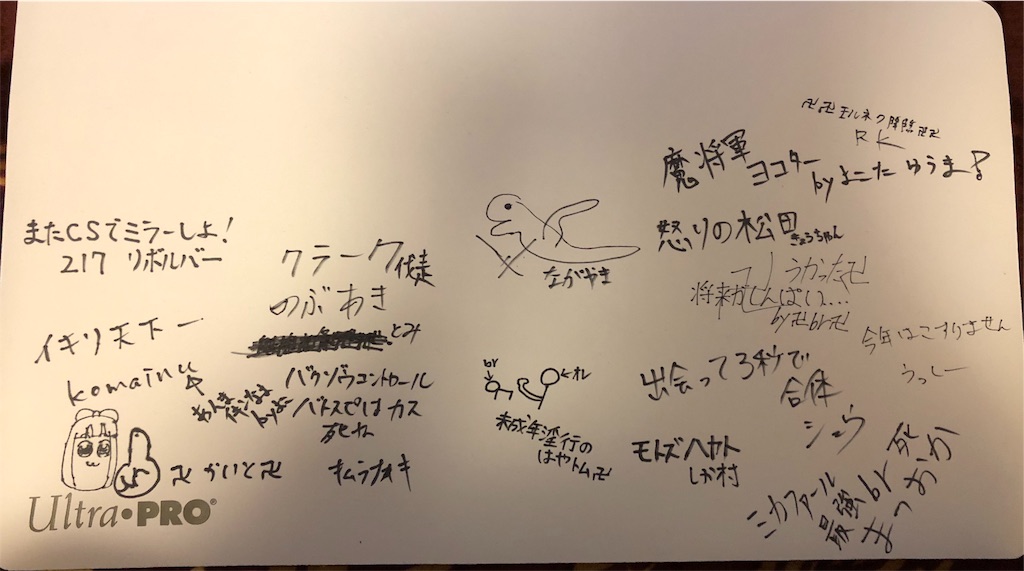 卍卍モルネク降臨卍卍
RK
魔将軍
ヨコター
byよこたゆうま!
またCSでミラーしよ!
217 リボルバー
クラーク
のぶあき
とみ
ながやま
怒りの松田
きょうちゃん
うかった卍
将来がしんぱい…
by卍br卍
今年はこすりません
うっしー
イキリ天下一
komainu
バクゾウコントロール
バトスピはカス
死ね
br
オレ
未成年淫行の
はやトム卍
出会って3秒で
合体
シュウ
モトズヘヤト
しか村
卍かいと卍
キムラナオキ
ミカファール
最強br
まつお
Ultra•PRO®